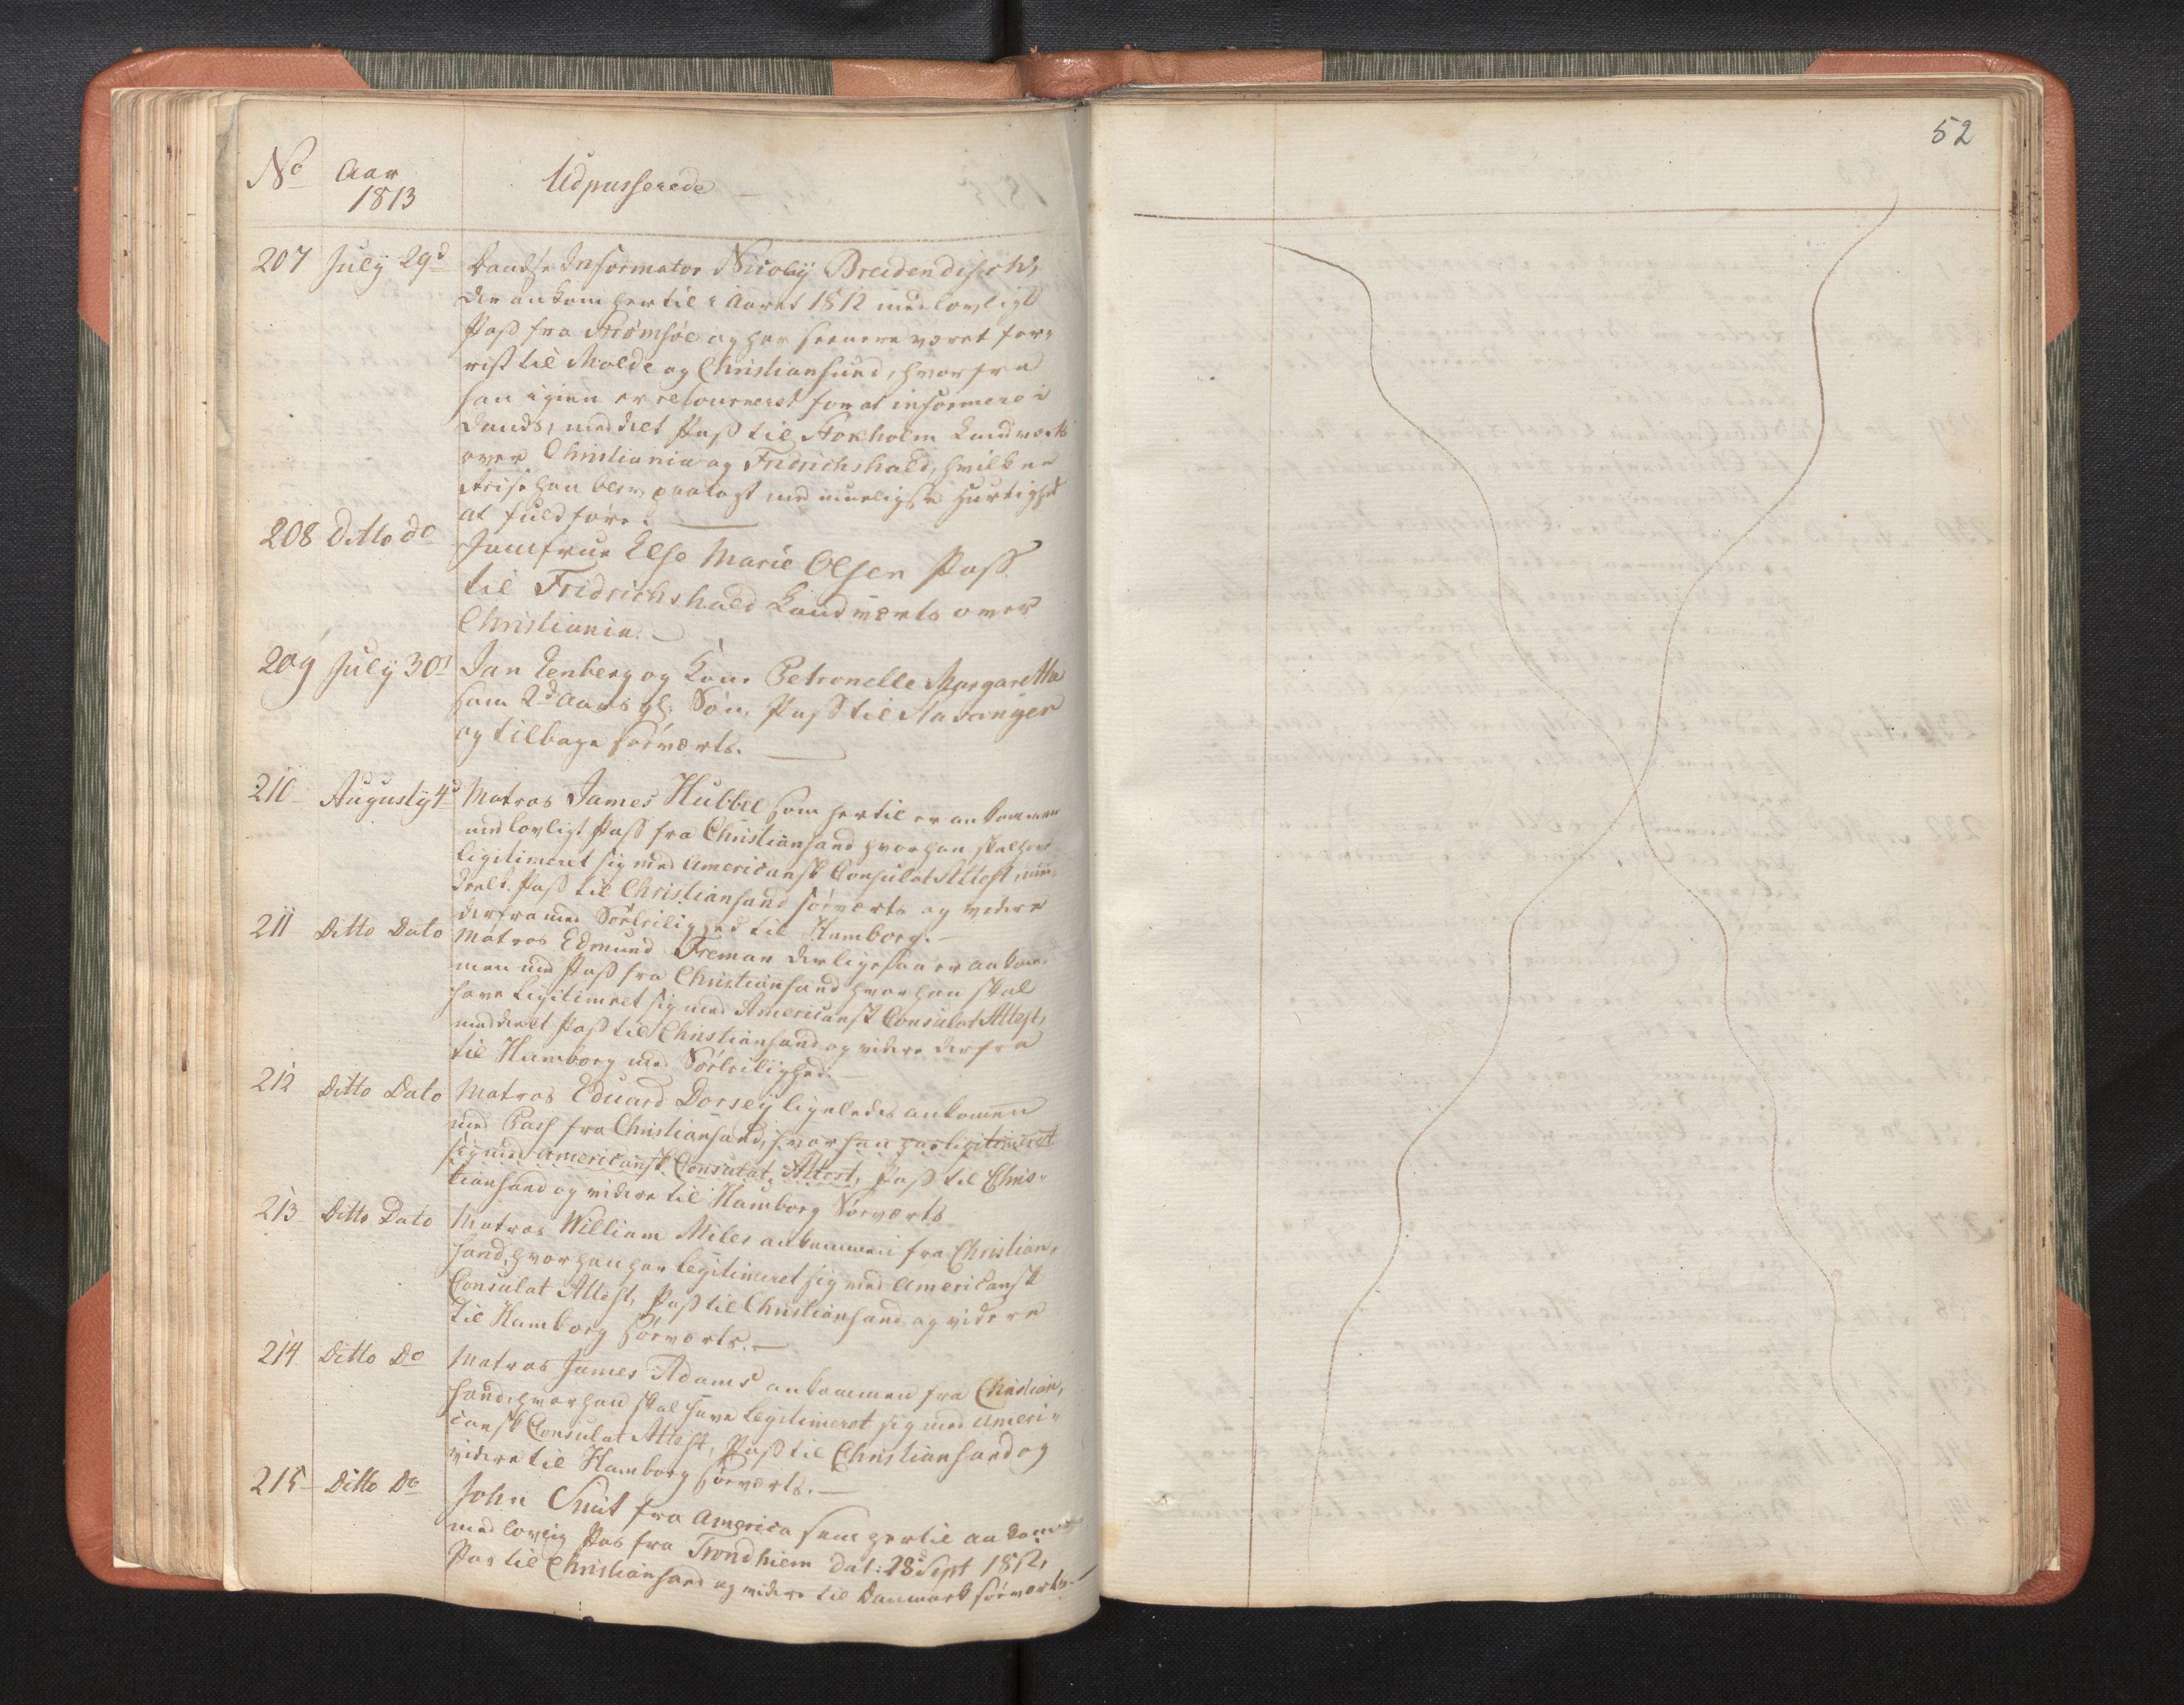 52
No Aar Udpasserede
1813
207 July 29d Dandse Informator Nicolaÿ Breidendisch,
der ankom hertil i Aaret 1812 med lovligt
Pass fra Strømsøe og har seenere været for-
rist til Molde og Christiansund, hvorfra
han igien er retourneret for at informere i
Dands, meddelt Pass til Stokholm Landværts
over Christiania og Fridrichshald, hvilken
Reise han blev paalagt med mueligste Hurtighed
at fuldføre.
208 Ditto do Jomfrue Else Marie Olsen Pass
til Fridrichshald Landværts over
Christiania.
209 July 30d Jan Eenberg og Kone Petronelle Margaretta
samt 2d Aars gl. Søn, Pass til Stavanger
og tilbage søeværts.
210 Augusty 4d Matros James Hubbel som hertil er ankommen
med lovligt Pass fra Christiansand hvor han skal have
Ligitimeret sig med Americansk Consulat Attest, med-
deelt Pass til Christiansand søeværts og videre
derfra med Søeleilighed til Hamborg.
211 Ditto Dato Matros Edmund Freman der ligesaa er ankom-
men med Pass fra Christiansand hvor han skal
have Ligitimeret sig med Americansk Consulat Attest,
meddeelt Pass til Christiansand og videre derfra
til Hamborg med Søeleilighed.
212 Ditto Dato Matros Eduard Dorseÿ ligeledes ankommen
med Pass fra Christiansand, hvor han har legitimeret
sig med Americansk Consulat Attest, Pass til Chris-
tiansand og videre til Hamborg Søeværts
213 Ditto Dato Matros William Miles ankommen fra Christian-
sand, hvor han har Legitimeret sig med Americansk
Consulat Attest, Pass til Christiansand og videre
til Hamborg søeværts.
214 Ditto Do Matros James Adams ankommen fra Christian-
sand, hvor han skal have Legitimeret sig med Ameri-
cansk Consulat Attest, Pass til Christiansand og
videre til Hamborg søeværts.
215 Ditto Do John Smit fra America som hertil ankom
med lovlig Pas fra Trondhiem dat: 28d Sept 1812,
Pas til Christiansand og videre til Danmark søeværts.